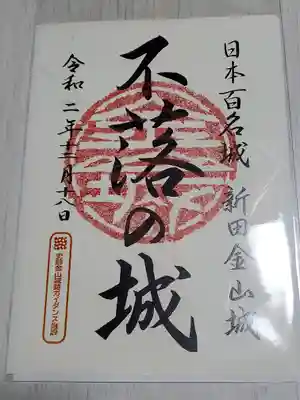 日本百名城 新田金山城
不落の城
令和二年十二月十八日
史跡金山城跡ガイダンス施設